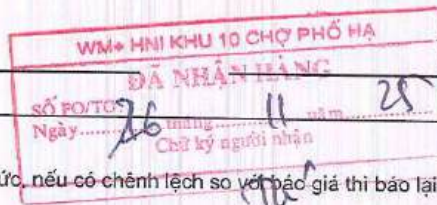 WM+ HNI KHU 10 CHỢ PHỐ HẠ
ĐÃ NHẬN HÀNG
SỐ PO/TO:
Ngày 26 tháng 11 năm 25
Chữ ký người nhận
ức, nếu có chênh lệch so với báo giá thì báo lại